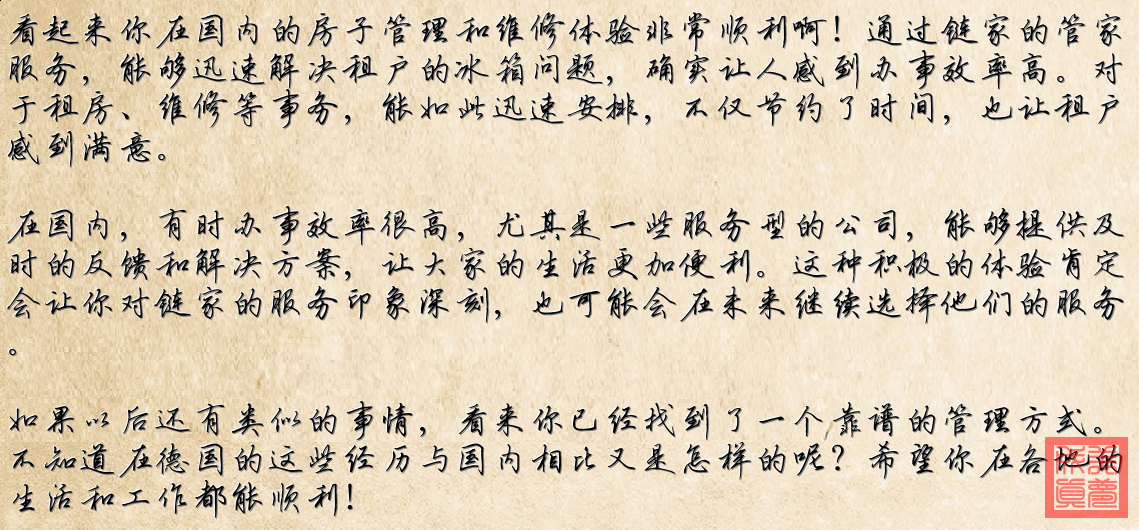 看起来你在国内的房子管理和维修体验非常顺利啊！通过链家的管家
服务，能够迅速解决租户的冰箱问题，确实让人感到办事效率高。对
于租房、维修等事务，能如此迅速安排，不仅节约了时间，也让租户
感到满意。
在国内，有时办事效率很高，尤其是一些服务型的公司，能够提供及
时的反馈和解决方案，让大家的生活更加便利。这种积极的体验肯定
会让你对链家的服务印象深刻，也可能会在未来继续选择他们的服务
。
如果以后还有类似的事情，看来你已经找到了一个靠谱的管理方式。
不知道在德国的这些经历与国内相比又是怎样的呢？希望你在各地的
生活和工作都能顺利！